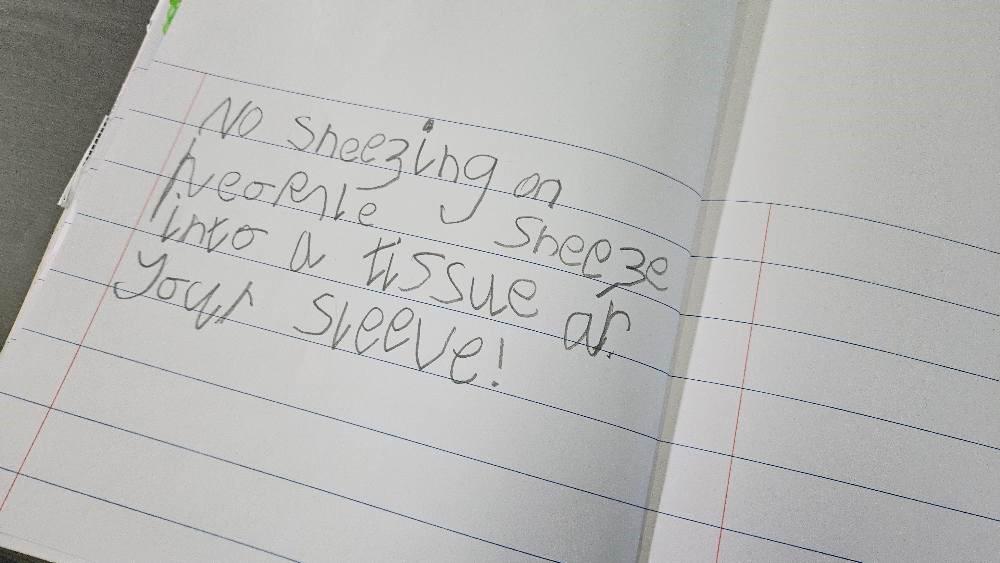 No sneezing on
people sneeze
into a tissue or
your sleeve!